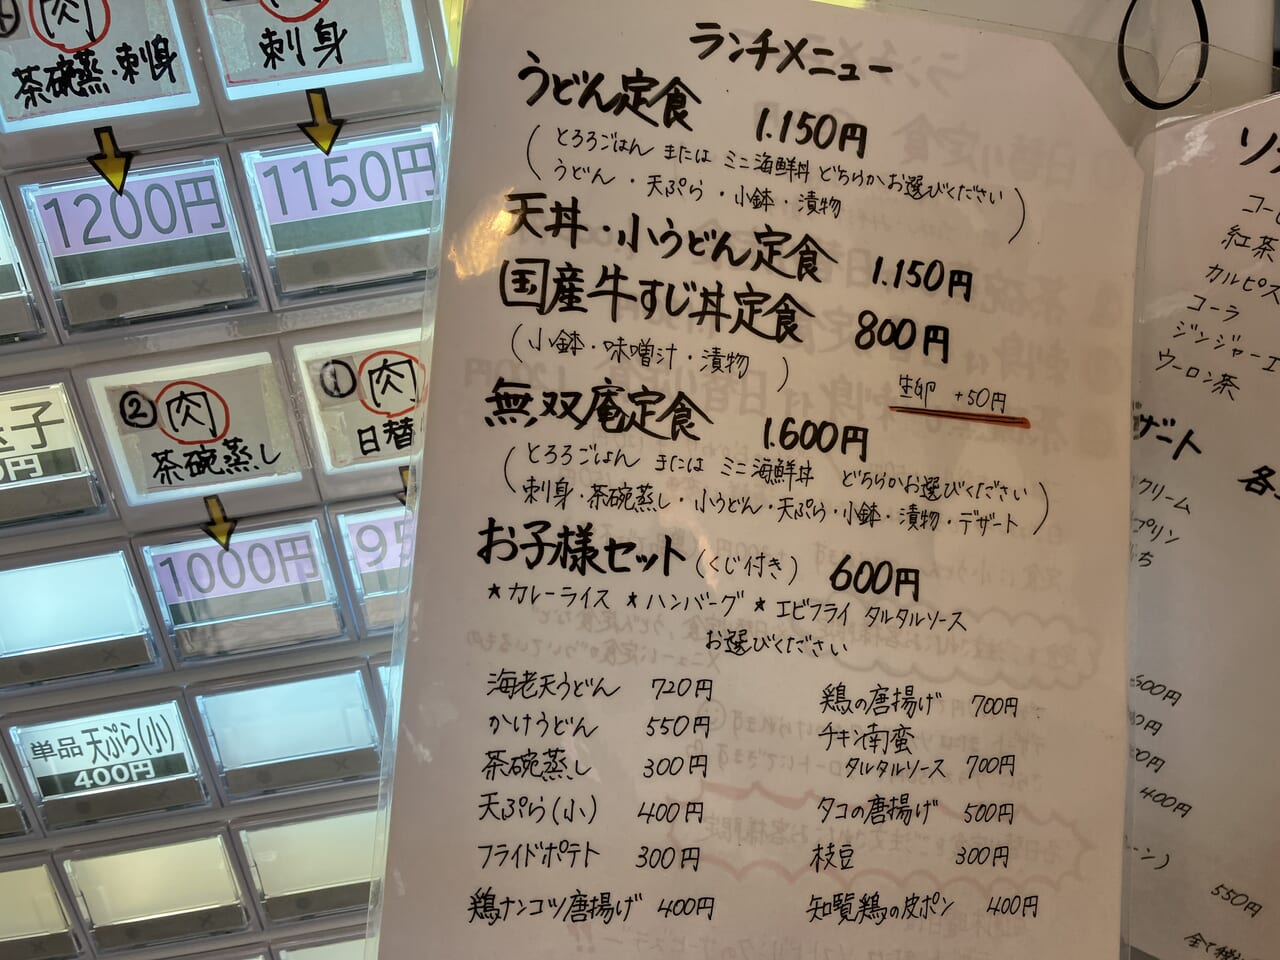 肉
茶碗蒸・刺身
刺身
1200円
1150円
② 肉
茶碗蒸し
① 肉
日替
1000円
95
単品 天ぷら(小)
400円
ランチメニュー
うどん定食 1.150円
(とろろごはん または ミニ海鮮丼 どちらかお選びください
うどん・天ぷら・小鉢・漬物)
天丼・小うどん定食 1.150円
国産牛すじ丼定食 800円
(小鉢・味噌汁・漬物)
生卵 +50円
無双庵定食 1.600円
(とろろごはん または ミニ海鮮丼 どちらかお選びください
刺身・茶碗蒸し・小うどん・天ぷら・小鉢・漬物・デザート)
お子様セット(くじ付き) 600円
★カレーライス ★ハンバーグ ★エビフライ タルタルソース
お選びください
海老天うどん 720円
かけうどん 550円
茶碗蒸し 300円
天ぷら(小) 400円
フライドポテト 300円
鶏ナンコツ唐揚げ 400円
鶏の唐揚げ 700円
チキン南蛮
タルタルソース 700円
タコの唐揚げ 500円
枝豆 300円
知覧鶏の皮ポン 400円
ソ
コー
紅茶
カルピス
コーラ
ジンジャーエ
ウーロン茶
ザート
各
クリーム
プリン
500円
400円
550円